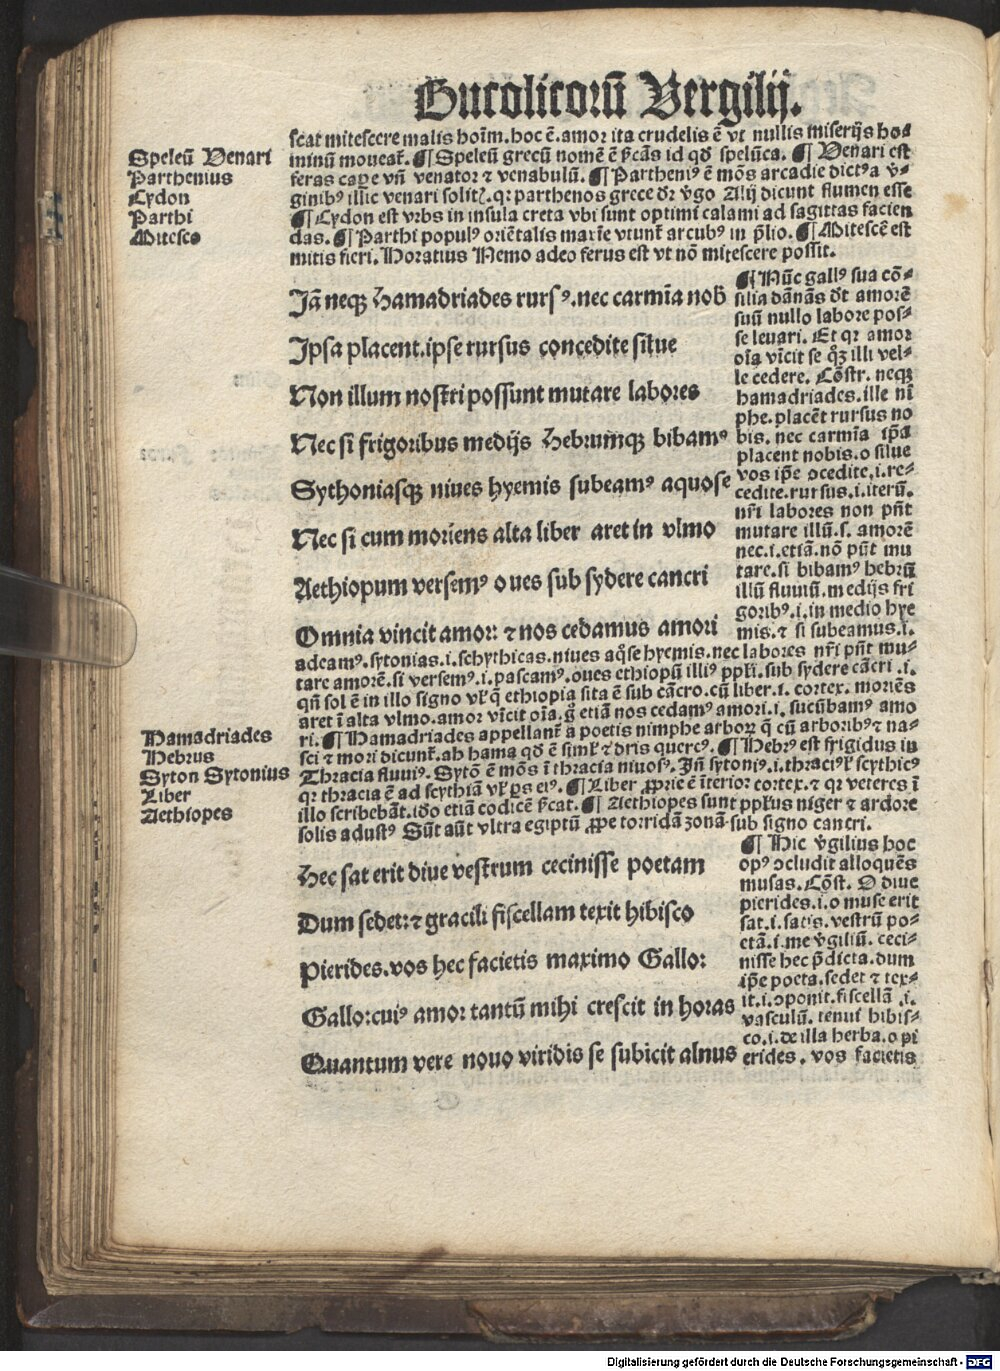 Bucolicorū Vergilij.
scat mitescere malis hoīm. hoc ē. amor ita crudelis ē vt nullis miserijs ho⸗
minū moueat᷑. ¶ Speleū grecū nomē ē ſ̄cās id qd̄ spelūca. ¶ Venari est
feras caꝑe vn̄ venator ⁊ venabulū. ¶ Partheniꝰ ē mōs arcadie dictꝰ a v̄⸗
ginibꝰ illic venari solitꝭ. qr parthenos grece dr̄ v̄go Alij dicunt flumen esse
¶ Cydon est vrbs in insula creta vbi sunt optimi calami ad sagittas facien
das. ¶ Parthi populꝰ oriētalis maxīe vtunt᷑ arcubꝰ in p̄lio. ¶ Mitescē est
mitis fieri. Horatius Nemo adeo ferus est vt nō mitescere possit.
Speleū Venari
Parthenius
Cydon
Parthi
Mitesco
Jā neqꝫ hamadriades rursꝰ. nec carmīa nob̄
Ipsa placent. ipse rursus concedite silue
Non illum nostri possunt mutare labores
Nec si frigoribus medijs hebrumqꝫ bibamꝰ
Sythoniasqꝫ niues hyemis subeamꝰ aquose
Nec si cum moriens alta liber aret in vlmo
Aethiopum versemꝰ oues sub sydere cancri
Omnia vincit amor: ⁊ nos cedamus amori
¶ Nūc gallꝰ sua cō⸗
silia dānās dt̄ amorē
suū nullo labore pos⸗
se leuari. Et qr amor
oīa vīcit se qꝫ illi vel⸗
le cedere. Cōstr. neqꝫ
hamadriades. ille nī
phe. placēt rursus no
bis. nec carmīa ip̄a
placent nobis. o silue
vos ip̄e ↄcedite. i. re⸗
cedite. rursus. i. iterū.
nr̄i labores non pn̄t
mutare illū. s. amorē
nec. i. etiā. nō pn̄t mu
tare. si bibamꝰ hebrū
illū fluuiū. medijs fri
goribꝰ. i. in medio hye
mis. ⁊ si subeamus. i.
adeamꝰ. sytonias. i. schythicas. niues aq̄se hyemis. nec labores nr̄i pn̄t mu⸗
tare amorē. si versemꝰ. i. pascamꝰ. oues ethiopū illiꝰ ppl̄i. sub sydere cācri .i.
qn̄ sol ē in illo signo vl̓ q̄ ethiopia sita ē sub cācro. cū liber. i. cortex. moriēs
aret ī alta vlmo. amor vīcit oīa. g̊ etiā nos cedamꝰ amori. i. sucūbamꝰ amo
ri. ¶ Hamadriades appellant᷑ a poetis nimphe arborꝝ q̄ cū arboribꝰ ⁊ na⸗
sci ⁊ mori dicunt᷑. ab hama qd̄ ē siml̓ ⁊ dris quercꝰ. ¶ Hebrꝰ est frigidus in
Thracia fluuiꝰ. Sytō ē mōs ī thracia niuosꝰ. Jn̄ sytoniꝰ. i. thraciꝰ vl̓ scythicꝰ
qr thracia ē ad scythiā vl̓ ꝑs eiꝰ. ¶ Liber ꝓprie ē īterior cortex. ⁊ qr veteres ī
illo scribebāt. iđo etiā codicē ſ̄cat. ¶ Aethiopes sunt ppl̓us niger ⁊ ardore
solis adustꝰ Sūt aūt vltra egiptū ꝓpe torridā zonā sub signo cancri.
Hamadriades
Hebrus
Syton Sytonius
Liber
Aethiopes
Hec sat erit diue vestrum cecinisse poetam
Dum sedet: ⁊ gracili fiscellam texit hibisco
Pierides. vos hec facietis maximo Gallo:
Gallo: cuiꝰ amor tantū mihi crescit in horas
Quantum vere nouo viridis se subicit alnus
¶ Hic v̄gilius hoc
opꝰ ↄcludit alloquēs
musas. Cōst. O diue
pierides. i. o muse erit
sat. i. satis. vestrū po⸗
etā. i. me v̄giliū. ceci⸗
nisse hec p̄dicta. dum
ip̄e poeta. sedet ⁊ tex⸗
it. i. ↄponit. fiscellā .i.
vasculū. tenui hibis⸗
co. i. de illa herba. o pi
erides. vos facietis
Digitalisierung gefördert durch die Deutsche Forschungsgemeinschaft - DFG